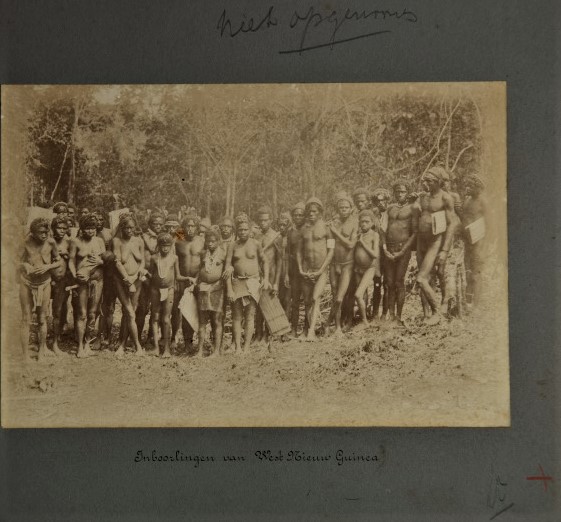 Niet opgenomen
Inboorlingen van West Nieuw Guinea